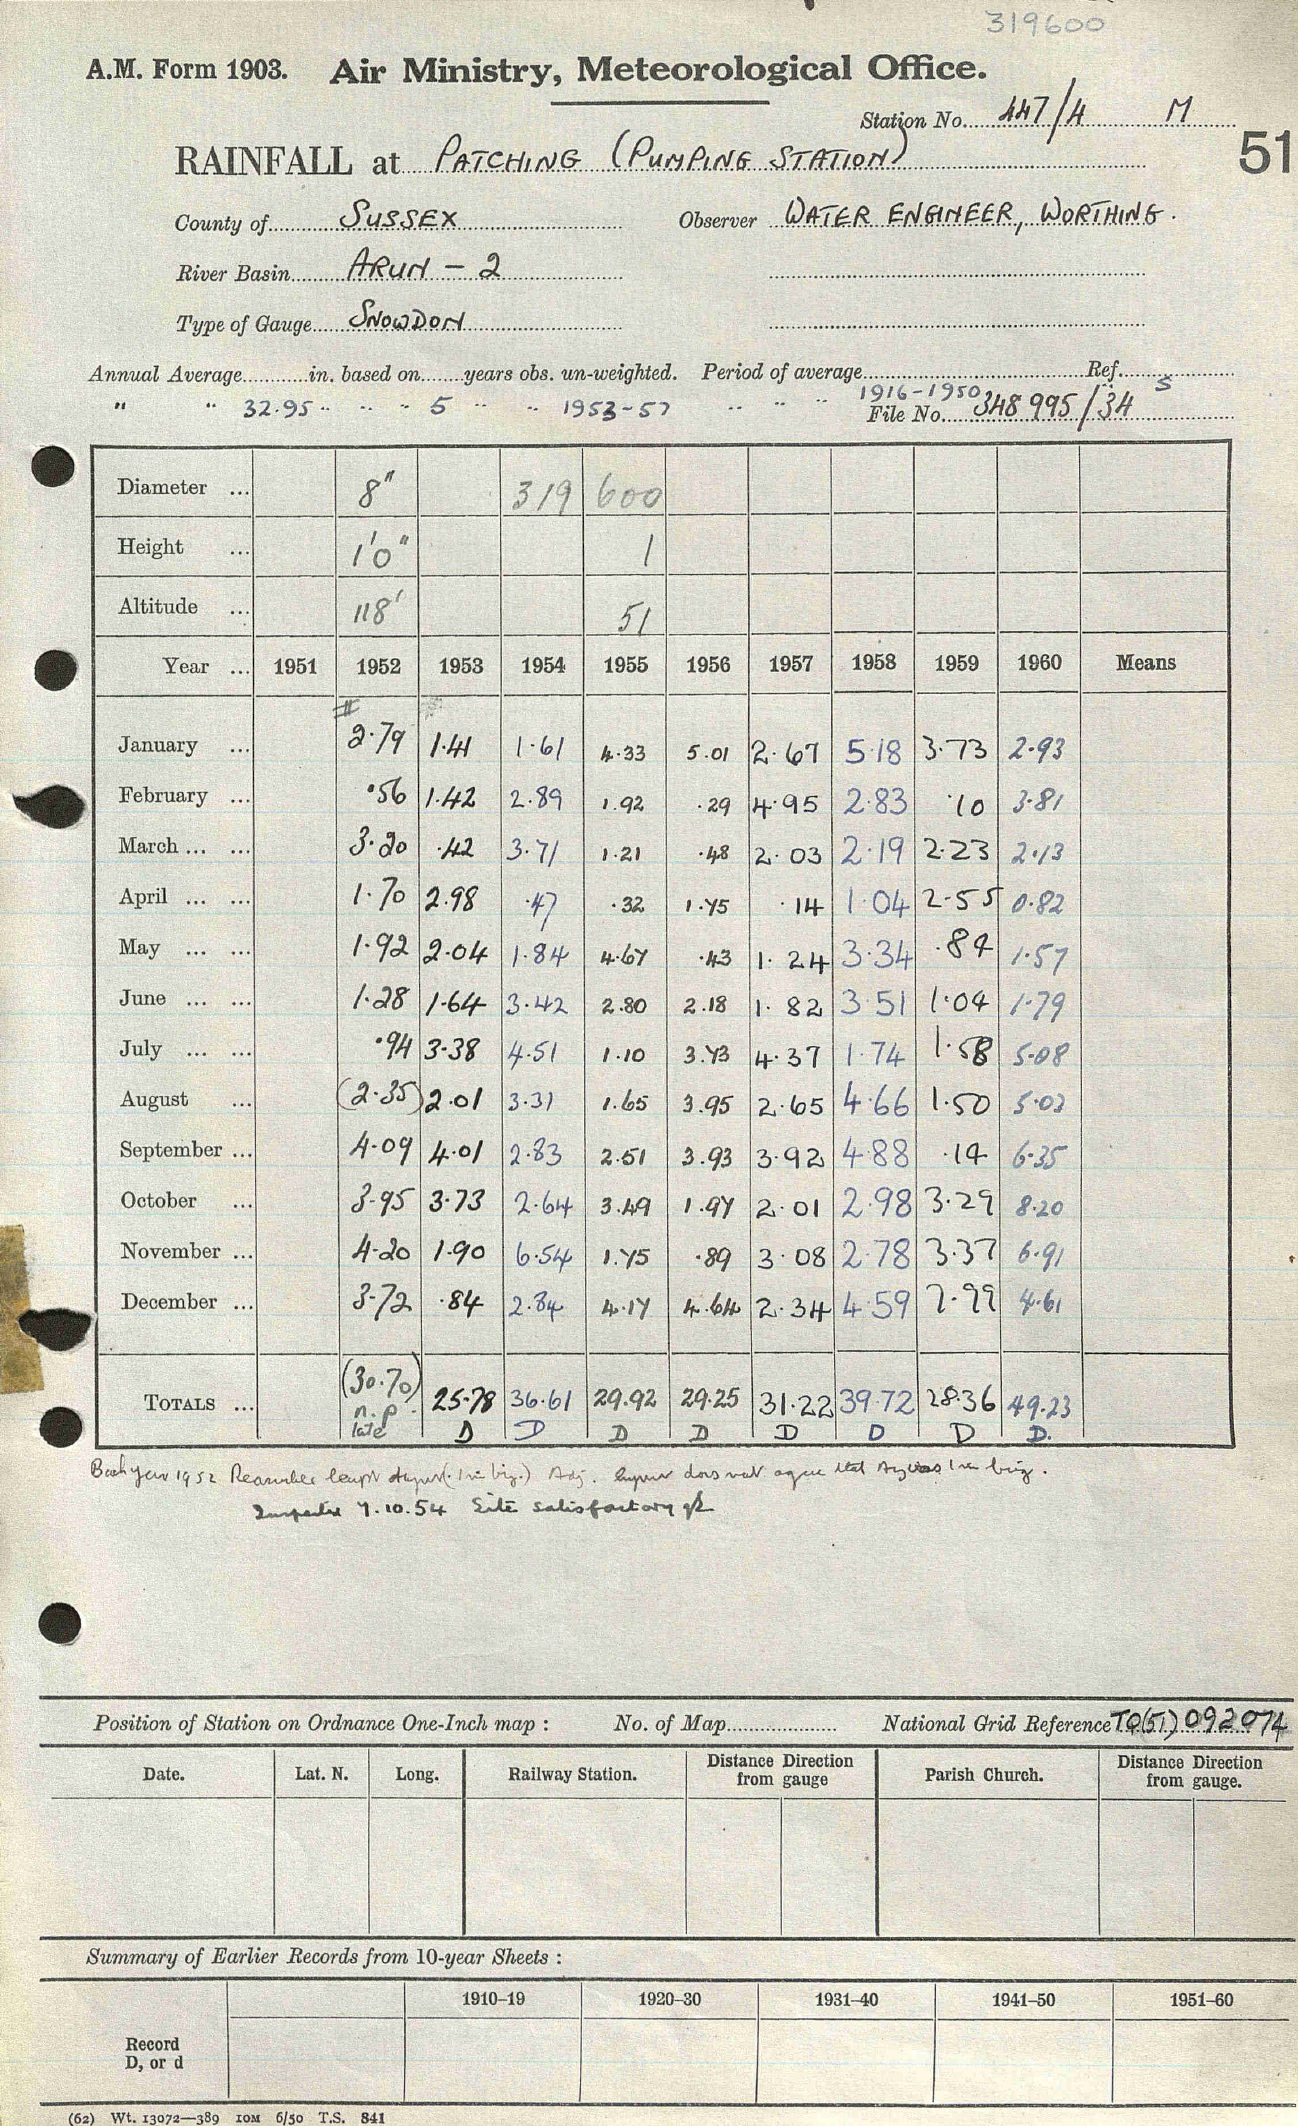 319600
A.M. Form 1903. Air Ministry, Meteorological Office.
Station No. 447/4 M
51
RAINFALL at PATCHING (PUMPING STATION)
County of SUSSEX Observer WATER ENGINEER, WORTHING.
River Basin ARUN - 2
Type of Gauge SNOWDON
Annual Average in. based on years obs. un-weighted. Period of average Ref. S
" " 32.95 " " " 5 " " " 1953-57 " " " 1916-1950 File No. 348995/34
Diameter ... 8" 319 600
Height ... 1'0" 1
Altitude ... 118' 51
Year ... 1951 1952 1953 1954 1955 1956 1957 1958 1959 1960 Means
# #
January ... 2.79 1.41 1.61 4.33 5.01 2.67 5.18 3.73 2.93
February ... .56 1.42 2.89 1.92 .29 4.95 2.83 .10 3.81
March ... ... 3.20 .42 3.71 1.21 .48 2.03 2.19 2.23 2.13
April ... ... 1.70 2.98 .47 .32 1.75 .14 1.04 2.55 0.82
May ... ... 1.92 2.04 1.84 4.67 .43 1.24 3.34 .84 1.57
June ... ... 1.28 1.64 3.42 2.80 2.18 1.82 3.51 1.04 1.79
July ... ... .94 3.38 4.51 1.10 3.73 4.37 1.74 1.58 5.08
August ... (2.35) 2.01 3.31 1.65 3.95 2.65 4.66 1.50 5.03
September ... 4.09 4.01 2.83 2.51 3.93 3.92 4.88 .14 6.35
October ... 3.95 3.73 2.64 3.49 1.97 2.01 2.98 3.29 8.20
November ... 4.20 1.90 6.54 1.75 .89 3.08 2.78 3.37 6.91
December ... 3.72 .84 2.84 4.17 4.64 2.34 4.59 7.99 4.61
TOTALS ... (30.70) 25.78 36.61 29.92 29.25 31.22 39.72 28.36 49.23
n.p. late D D D D D D D D.
1952 does not agree
7.10.54 Site satisfactory
Position of Station on Ordnance One-Inch map : No. of Map National Grid Reference TQ(51) 092074
Date. Lat. N. Long. Railway Station. Distance Direction from gauge Parish Church. Distance Direction from gauge.
Summary of Earlier Records from 10-year Sheets :
1910–19 1920–30 1931–40 1941–50 1951–60
Record
D, or d
(62) Wt. 13072—389 10M 6/50 T.S. 841